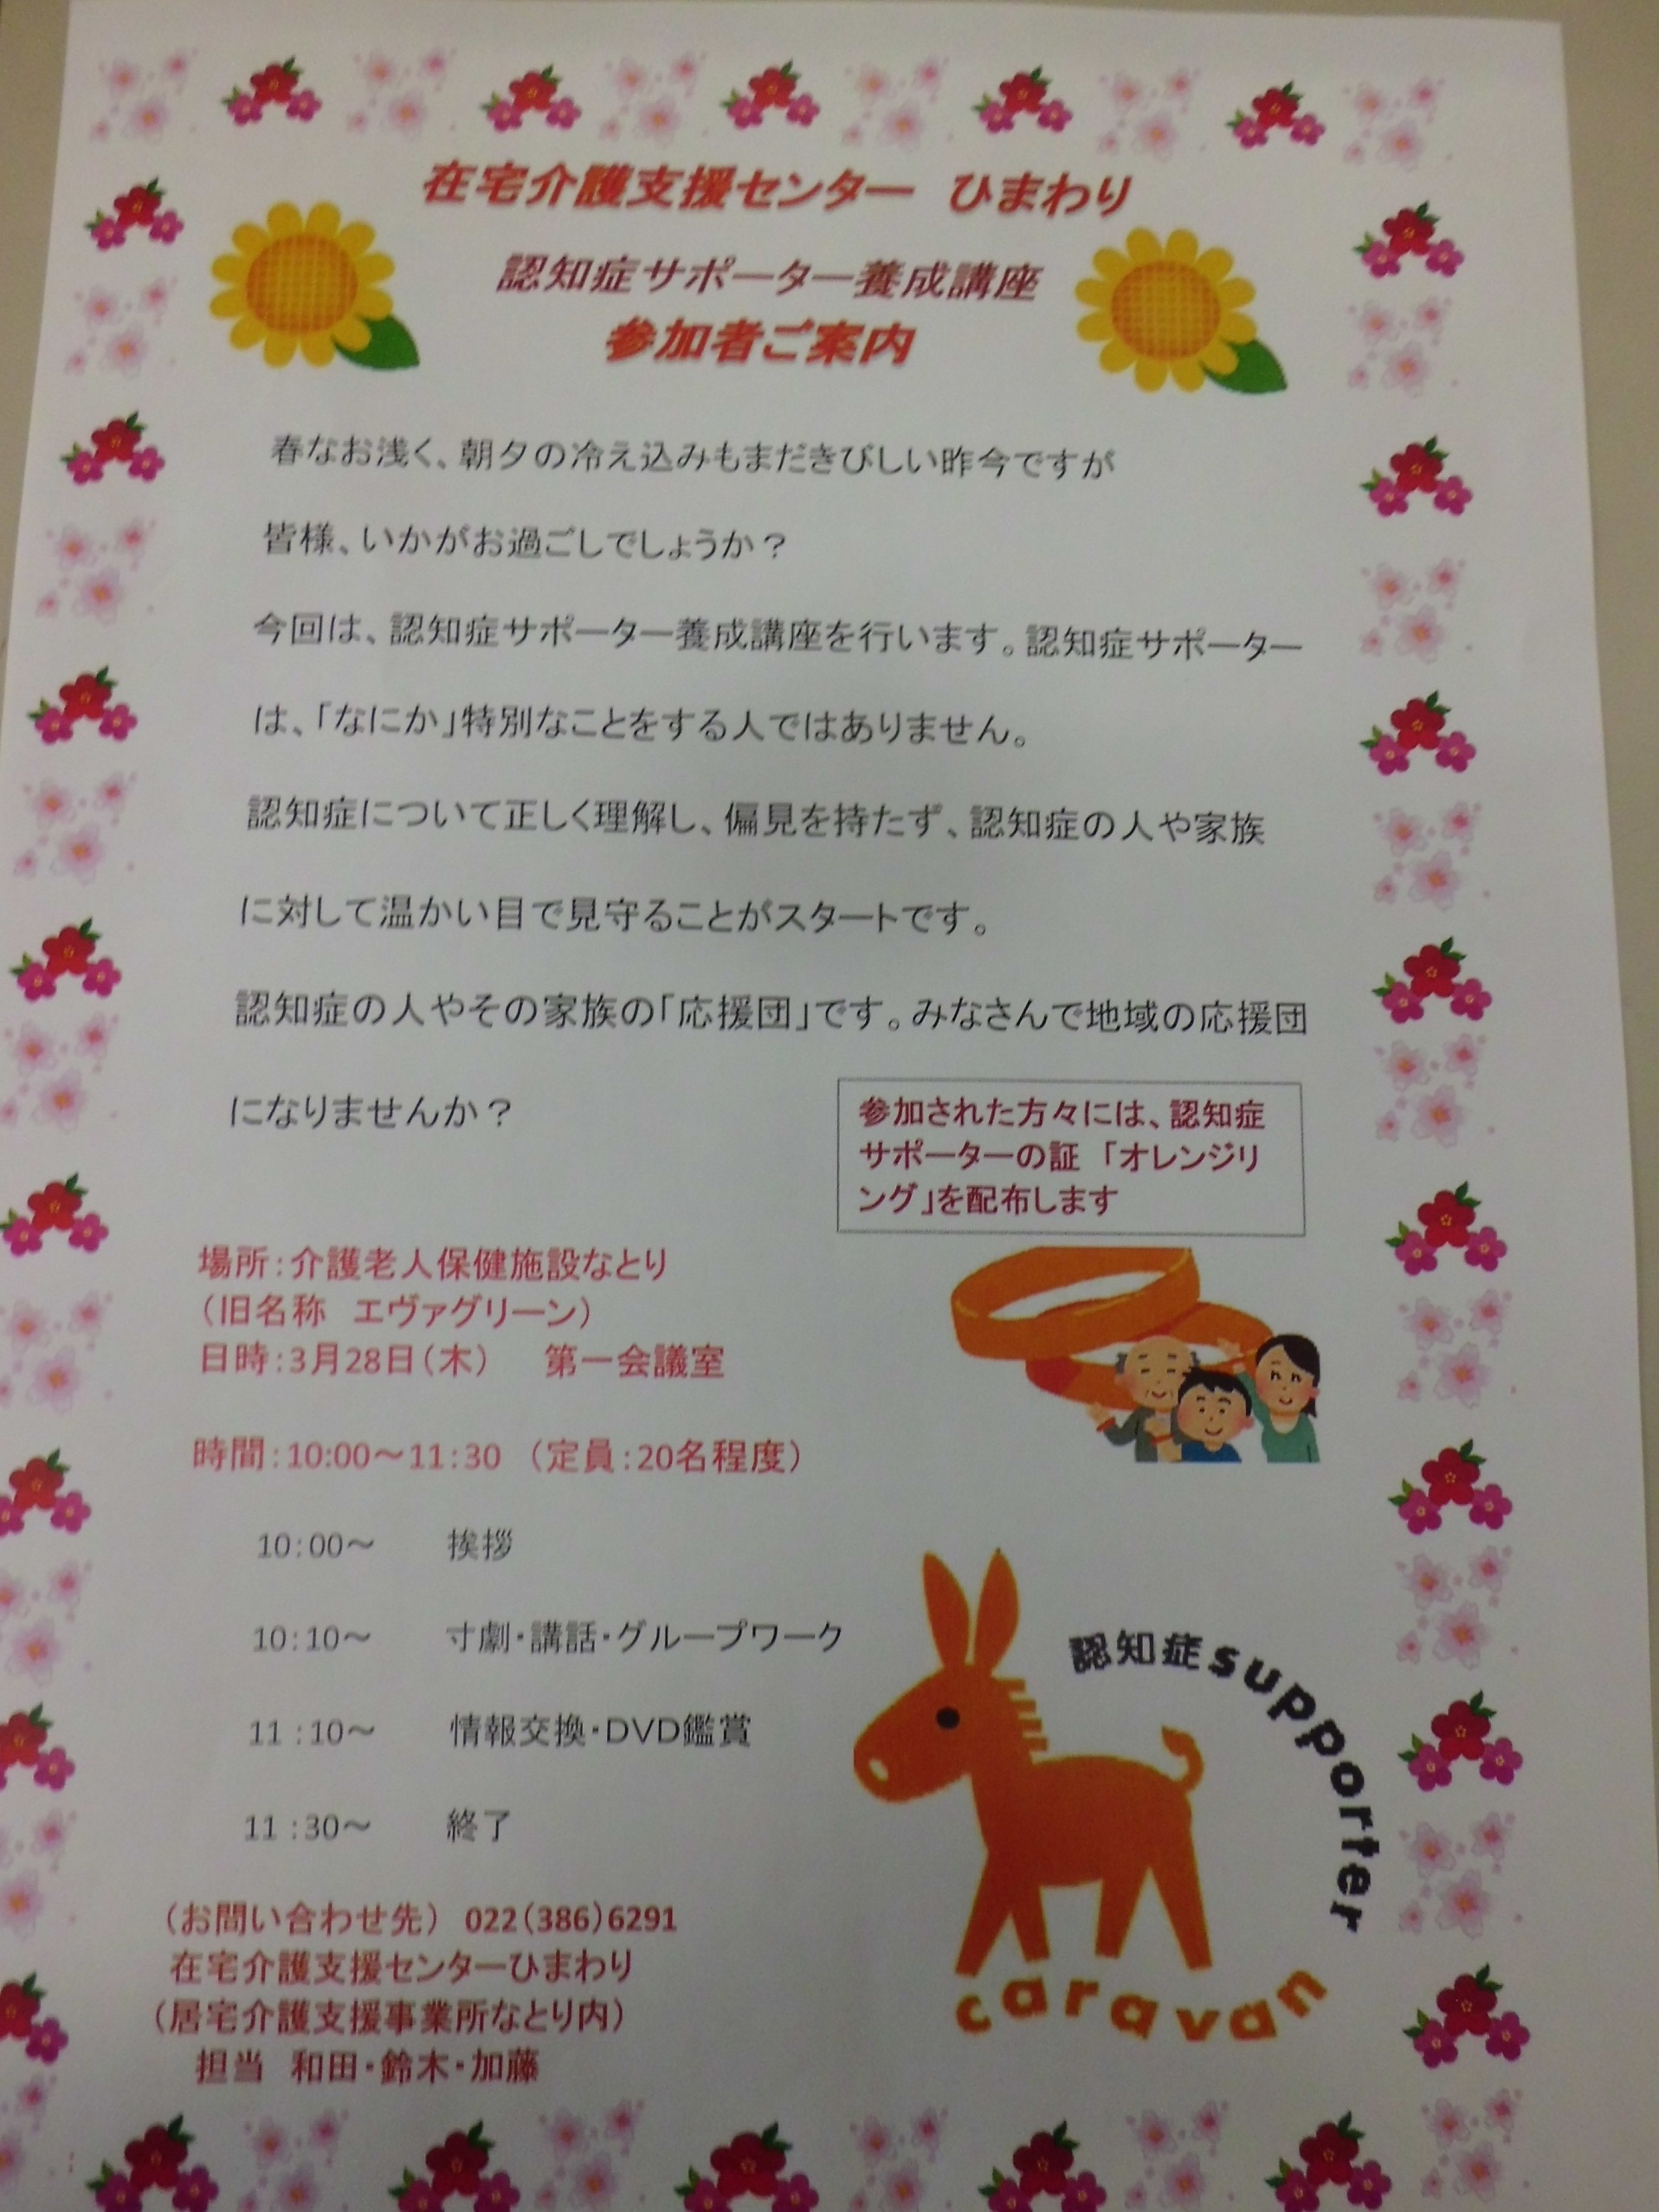 在宅介護支援センター　ひまわり
認知症サポーター養成講座
参加者ご案内
春なお浅く、朝夕の冷え込みもまだきびしい昨今ですが
皆様、いかがお過ごしでしょうか？
今回は、認知症サポーター養成講座を行います。認知症サポーター
は、「なにか」特別なことをする人ではありません。
認知症について正しく理解し、偏見を持たず、認知症の人や家族
に対して温かい目で見守ることがスタートです。
認知症の人やその家族の「応援団」です。みなさんで地域の応援団
になりませんか？
参加された方々には、認知症
サポーターの証　「オレンジリ
ング」を配布します
場所：介護老人保健施設なとり
（旧名称　エヴァグリーン）
日時：3月28日（木）　第一会議室
時間：10:00～11:30　（定員：20名程度）
10:00～　挨拶
10:10～　寸劇・講話・グループワーク
11:10～　情報交換・DVD鑑賞
11:30～　終了
認知症supporter
caravan
（お問い合わせ先）　022（386）6291
在宅介護支援センターひまわり
（居宅介護支援事業所なとり内）
担当　和田・鈴木・加藤